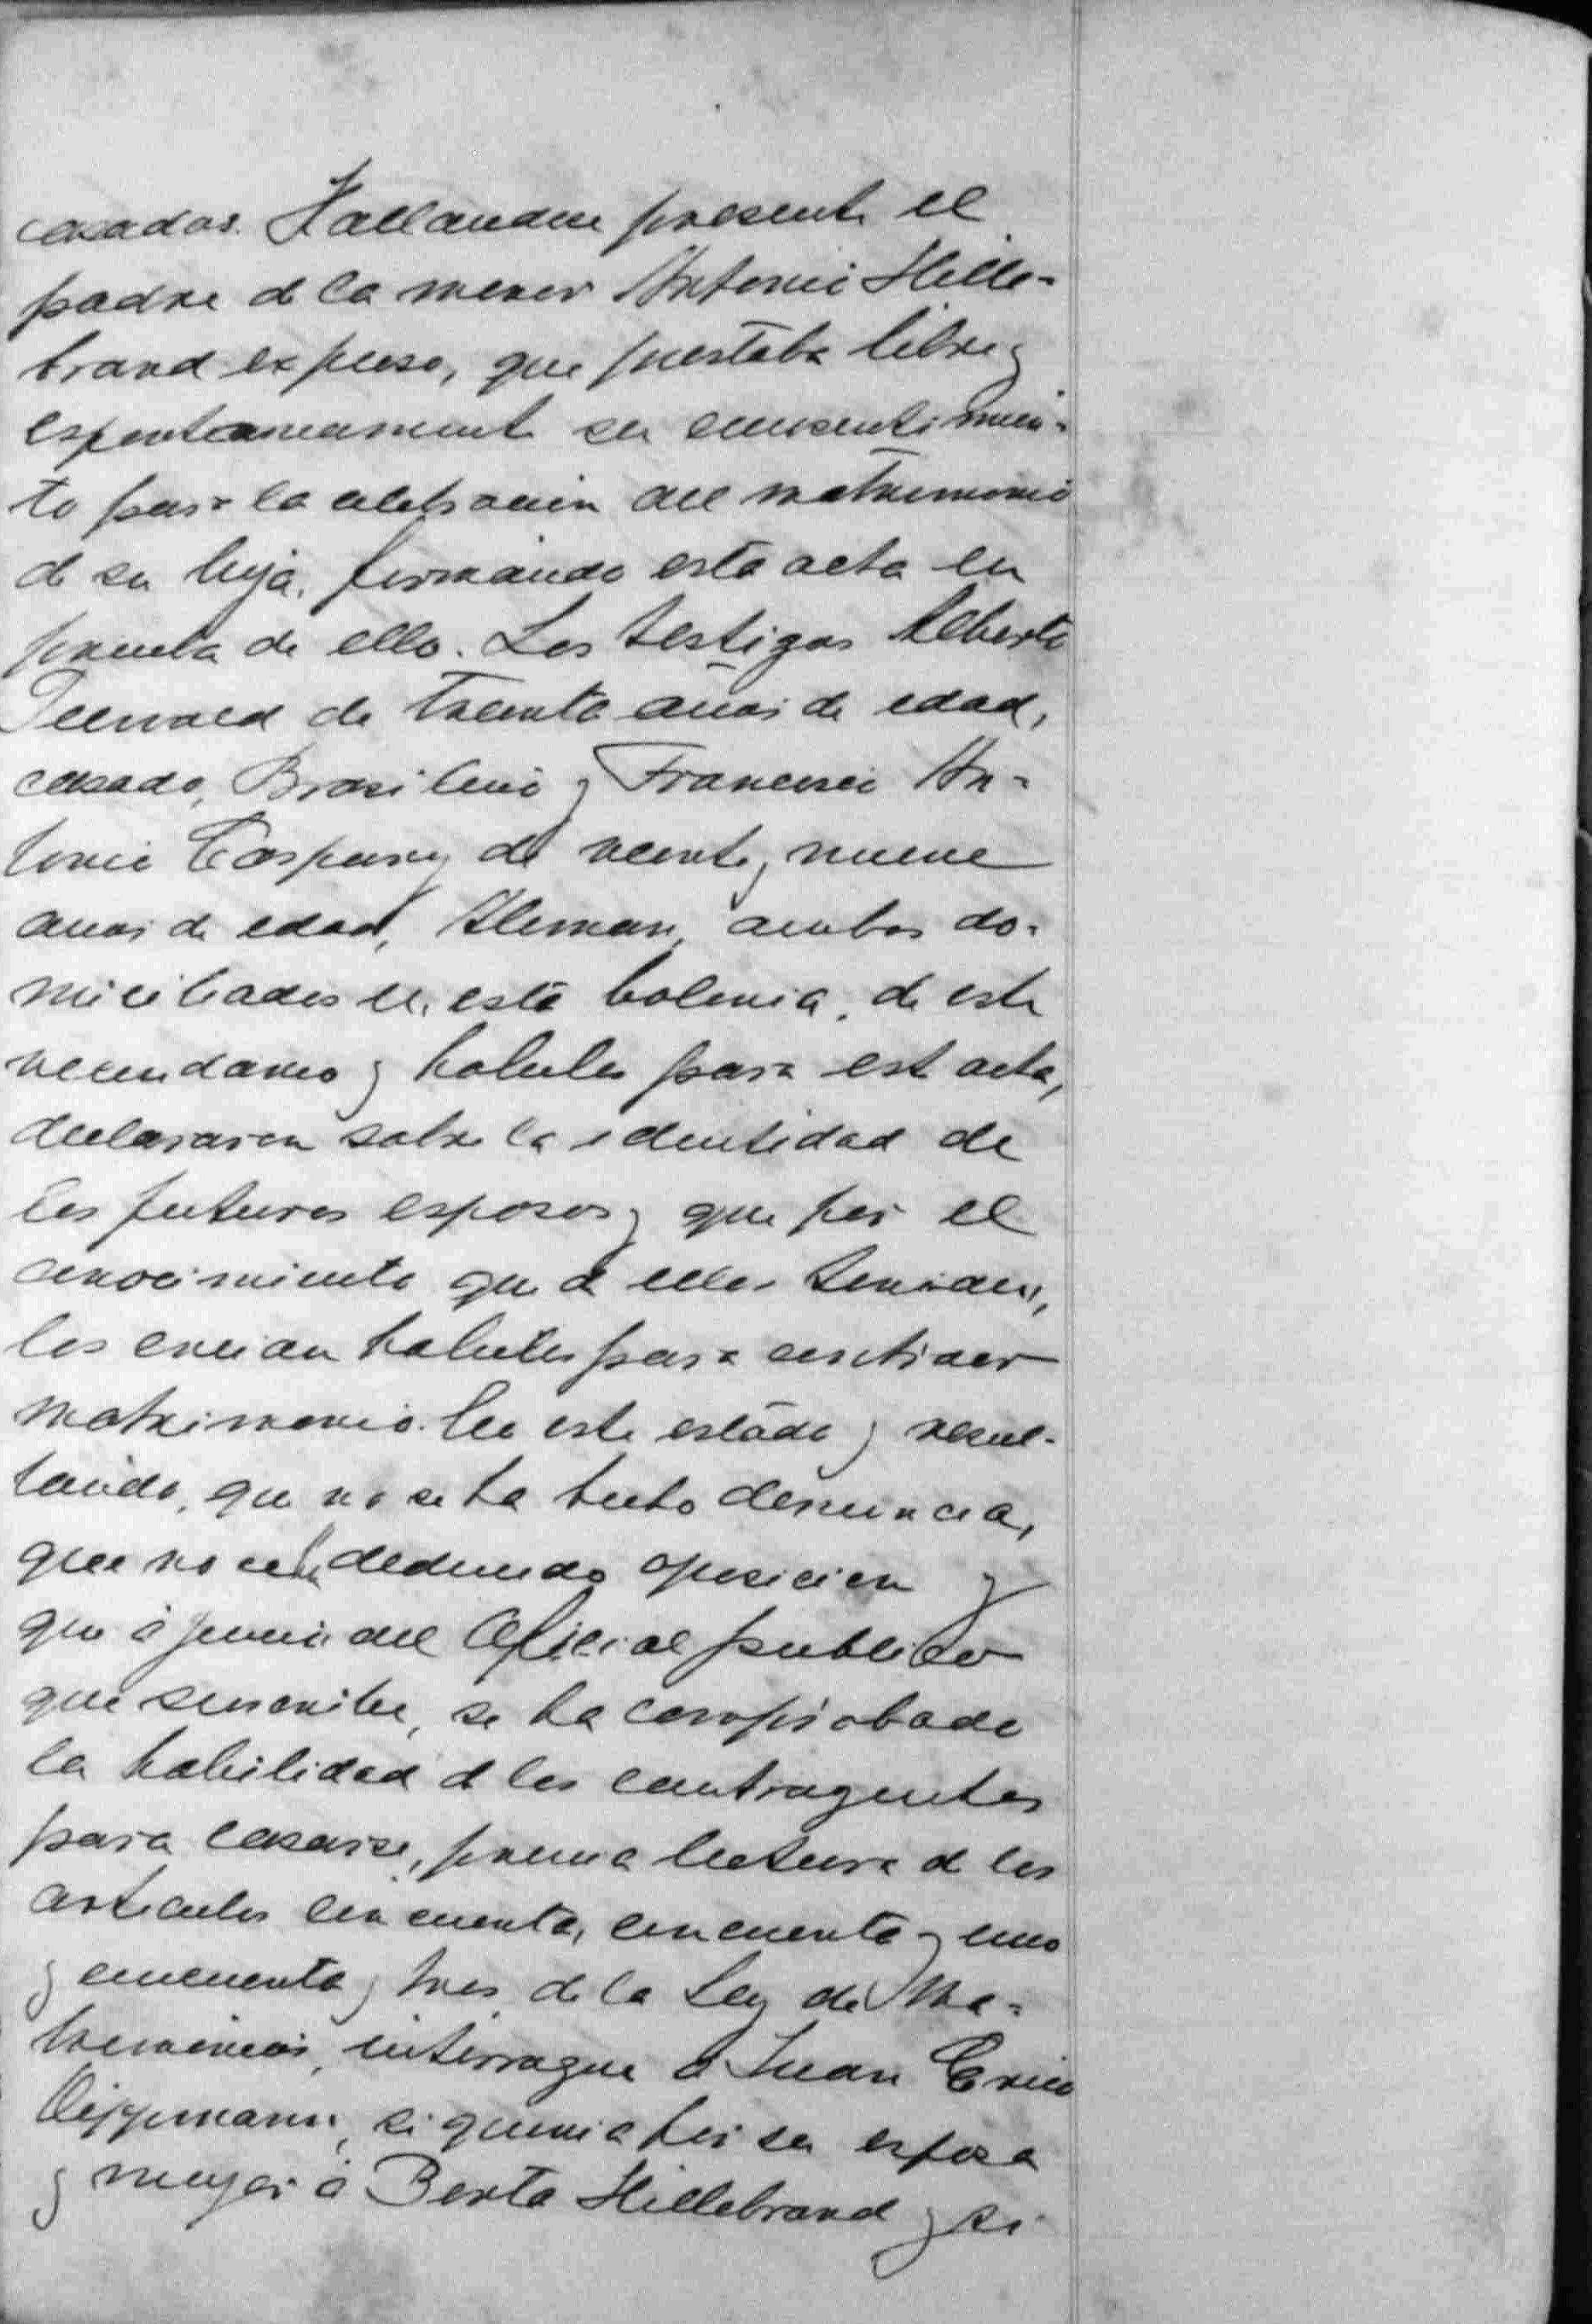 casados. Hallandose presente el
padre de la menor Antonio Hille-
brand expuso, que prestaba libre y
espontaneamente su consentimien-
to para la celebracion del matrimonio
de su hija, firmando esta acta en
prueba de ello. Los testigos Alberto
de treinta años de edad,
casado, Brasilero y Francisco An-
tonio Caspary de veinte y nueve
años de edad, Aleman, ambos do-
miciliados en esta Colonia, de este
vecindario y habiles para este acto,
declararon sobre la identidad de
los futuros esposos y que por el
conocimiento que de ellos tenian,
los creian habiles para contraer
matrimonio. En este estado y resul-
tando, que no se ha hecho denuncia,
que no se ha deducido oposicion y
que á juicio del Oficial publico
que suscribe, se ha comprobado
la habilidad de los contrayentes
para casarse, previa lectura de los
articulos cincuenta, cincuenta y uno
y cincuenta y tres de la Ley de Ma-
trimonios, interrogue á Juan Erico
si queria por su esposa
y mujer á Berta Hillebrand y si